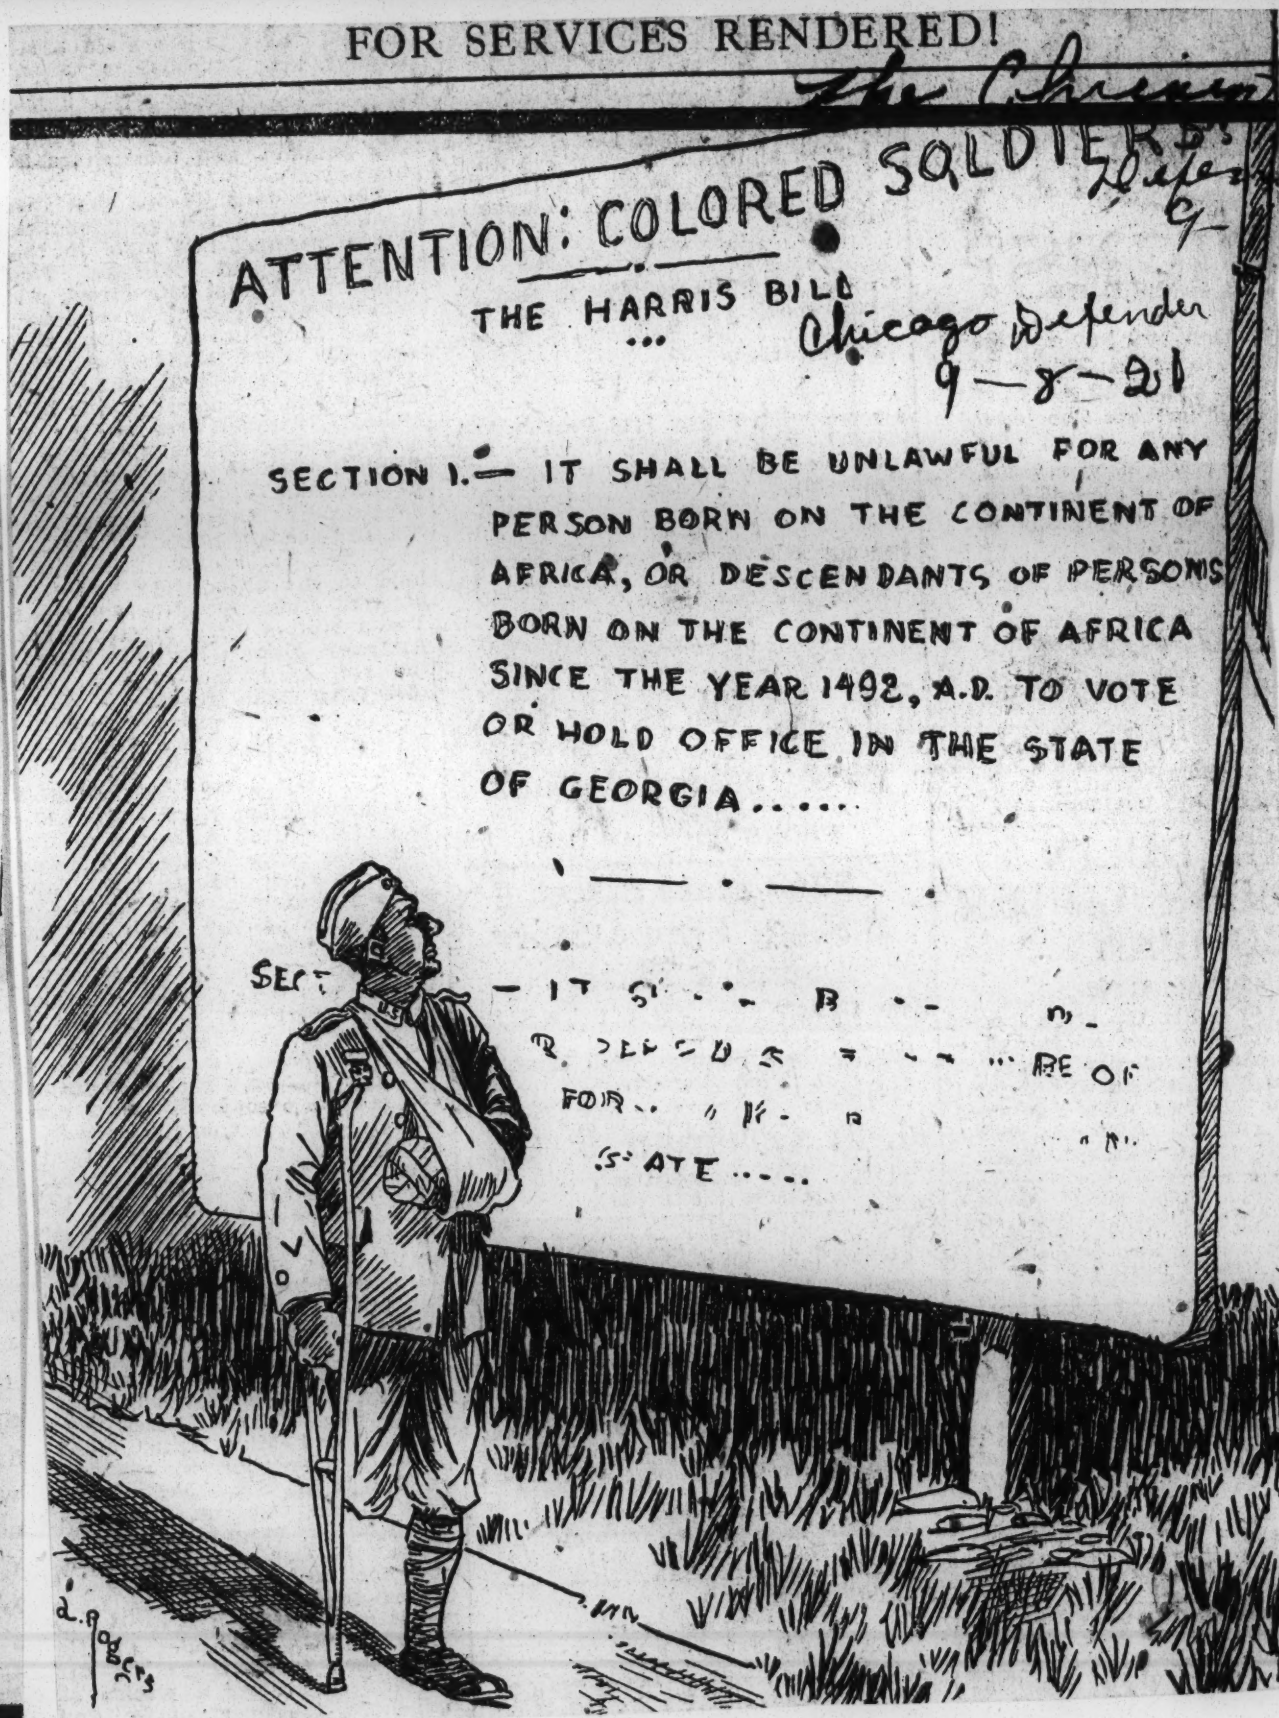 FOR SERVICES RENDERED!
The
ATTENTION: COLORED SOLDIERS!
THE HARRIS BILL
Chicago Defender
9-8-21
SECTION 1.— IT SHALL BE UNLAWFUL FOR ANY
PERSON BORN ON THE CONTINENT OF
AFRICA, OR DESCENDANTS OF PERSONS
BORN ON THE CONTINENT OF AFRICA
SINCE THE YEAR 1492, A.D. TO VOTE
OR HOLD OFFICE IN THE STATE
OF GEORGIA......
SECT
- IT
BE OF
FOR
ATE.....
U.S
L. Rogers